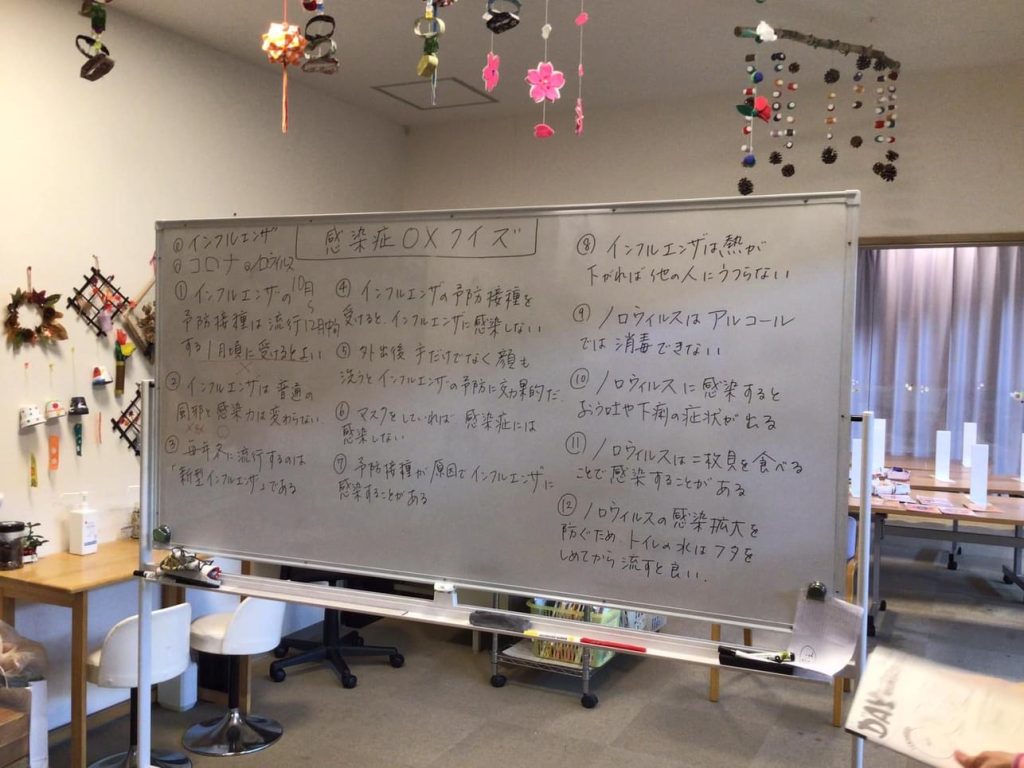 感染症OXクイズ
①インフルエンザ
②コロナ ③ノロウィルス
① インフルエンザの10月
予防接種は流行 12月中旬
する1月頃に受けるとよい
② インフルエンザは普通の
風邪と感染力は変わらない
③ 毎年冬に流行するのは
「新型インフルエンザ」である
④ インフルエンザの予防接種を
受けると、インフルエンザに感染しない
⑤ 外出後 手だけでなく顔も
洗うとインフルエンザの予防に効果的だ
⑥ マスクをしていれば 感染症には
感染しない
⑦ 予防接種が原因でインフルエンザに
感染することがある
⑧ インフルエンザは、熱が
下がれば他の人にうつらない
⑨ ノロウィルスは アルコール
では 消毒できない
⑩ ノロウィルスに感染すると
おう吐や下痢の症状が出る
⑪ ノロウィルスは二枚貝を食べる
ことで感染することがある
⑫ ノロウィルスの感染拡大を
防ぐため、トイレの水はフタを
しめてから 流すと良い.
DAY